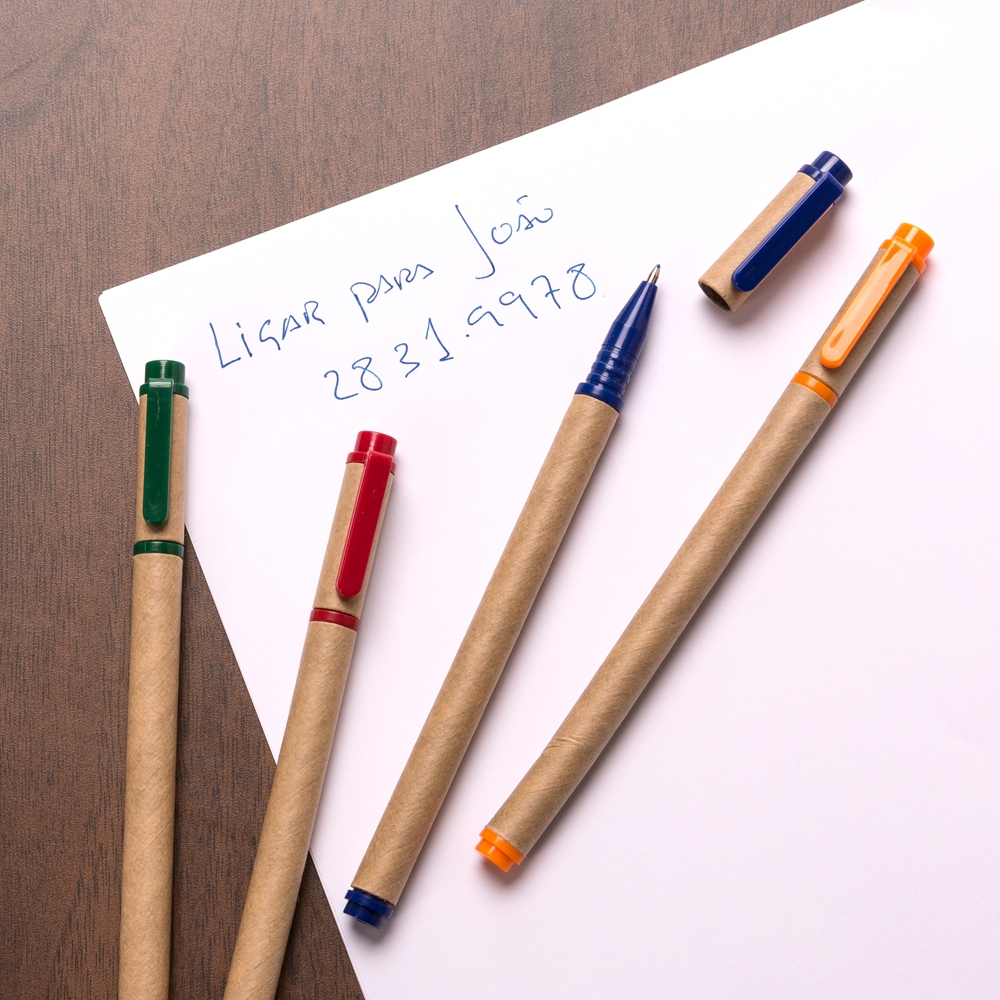 Ligar para João
2831.9978